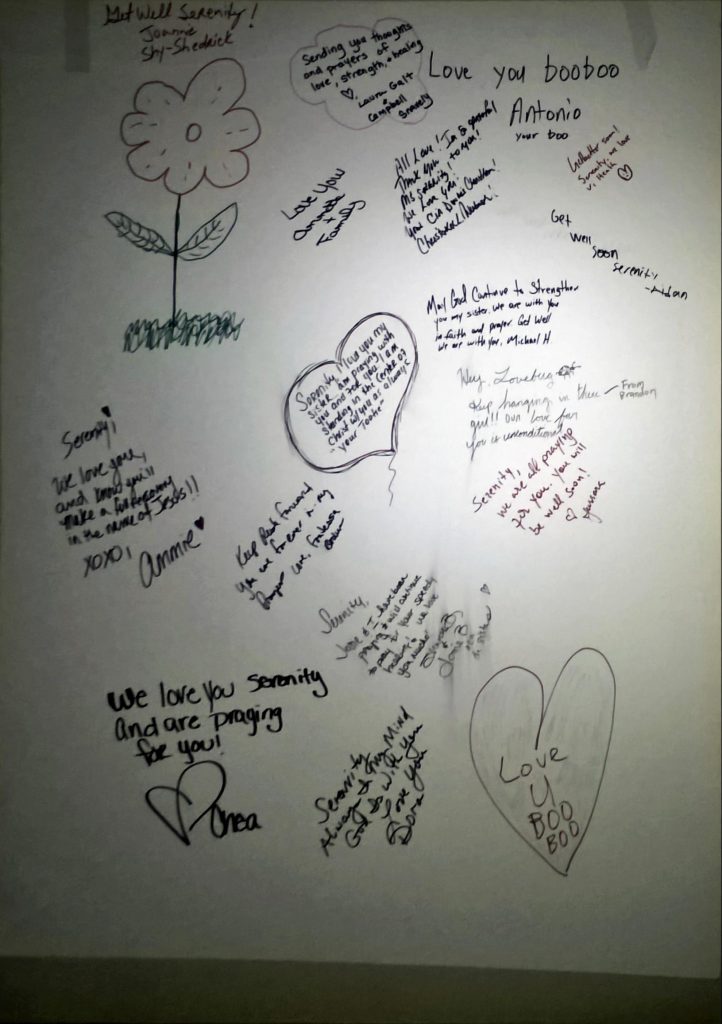 Get Well Serenity!
Joanne
Shy-Shedrick
Sending you thoughts
and prayers of
love, strength, & healing
Laura Galt
&
Campbell
Love you booboo
Antonio
your boo
All Love!
Thank you
Ms. Serenity, to you!
We Love You!
Love You
Family
Serenity, we love
Get
Well
Soon
Serenity,
-Aidan
May God Continue to Strengthen
you my sister. We are with You
in faith and prayer. Get Well
We are with you, Michael H
Hey, Lovebug
Keep hanging in there
From
Brandon
girl!! Our love for
you is unconditional
Serenity, Miss you my
sister. I am praying with
you and for you. I am
standing in the Centre of
Christ w/ you as always
Serenity,
we are all praying
for you. You will
be well soon!
Serenity,
We love you,
and know you'll
make a full recovery
in the name of Jesus!!
XOXO,
Annie
Keep Push Forward
Serenity,
praying & will continue
to pray for your speedy
We love you Serenity
and are praging
for you!
Chea
Serenity
Always In My Mind
God Is With You
Love You
Dora
Love
U
BOO
BOO